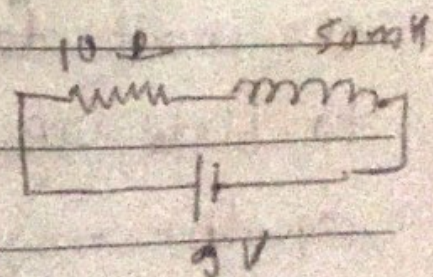 10 Ω 50mH
9 V